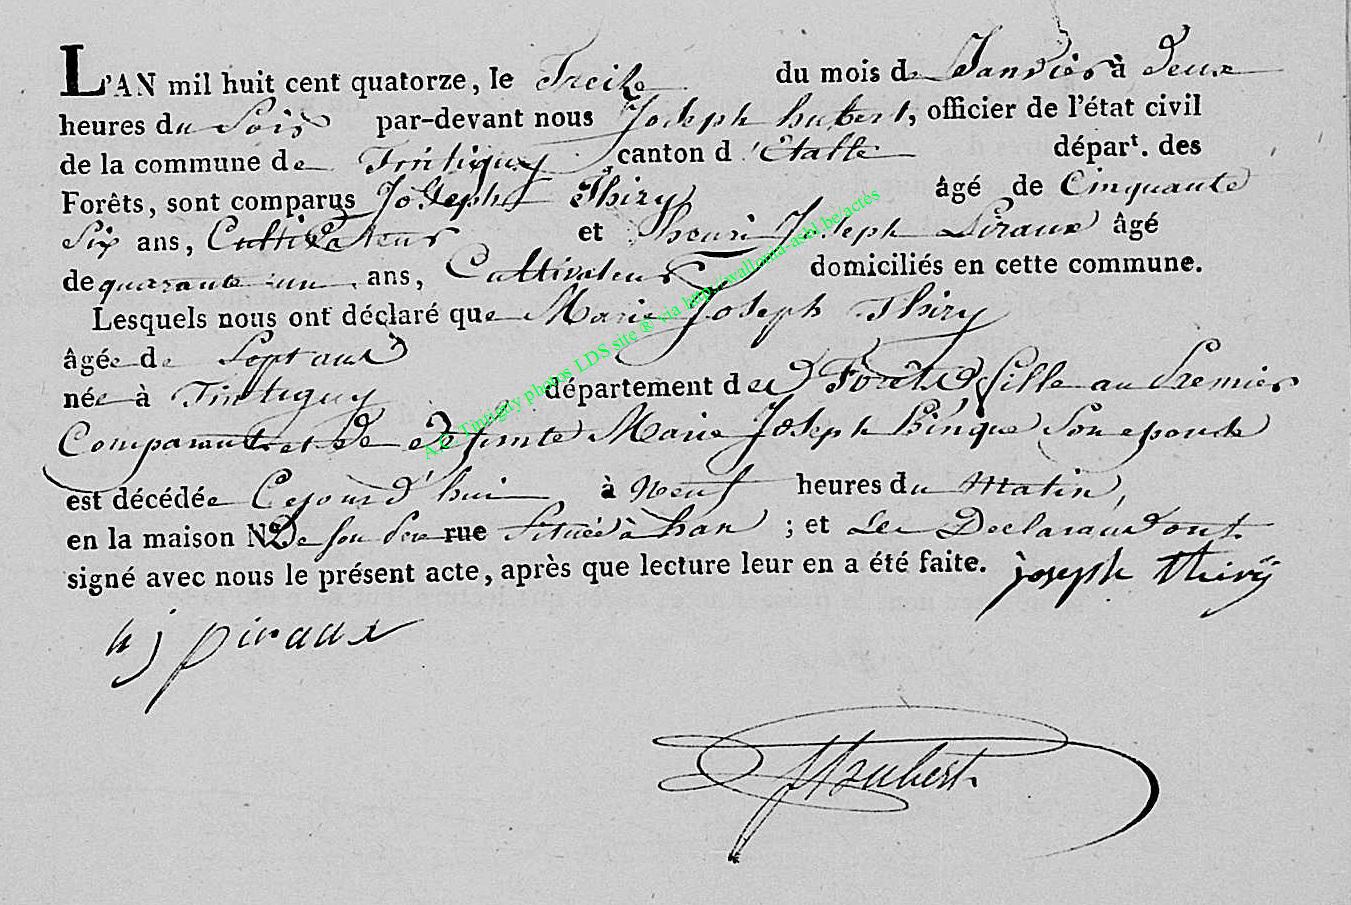 L'AN mil huit cent quatorze, le Treize du mois de Janvier à deux
heures du Soir par-devant nous Joseph hubert, officier de l'état civil
de la commune de Tintigny canton d'Etalleépar<sup>t</sup>. des
Forêts, sont comparus Joseph Thiry âgé de Cinquante
Six ans, Cultivateur et henri Joseph Piraux âgé
de quarante un ans, Cultivateur domiciliés en cette commune.
Lesquels nous ont déclaré que Marie Joseph Thiry
âgée de Sept ans
née à Tintigny département des Forêts fille au Premier
Comparant et de défunte Marie Joseph Pinque Son epouse
est décédée Cejourd'hui à Neuf heures du Matin,
en la maison N° De son Pere rue Située à han ; et Les Declarans ont
signé avec nous le présent acte, après que lecture leur en a été faite. joseph thirÿ
h j piraux
JHubert
A.C. Tintigny photos LDS site ® via http://wallonia-asbl.be/actes